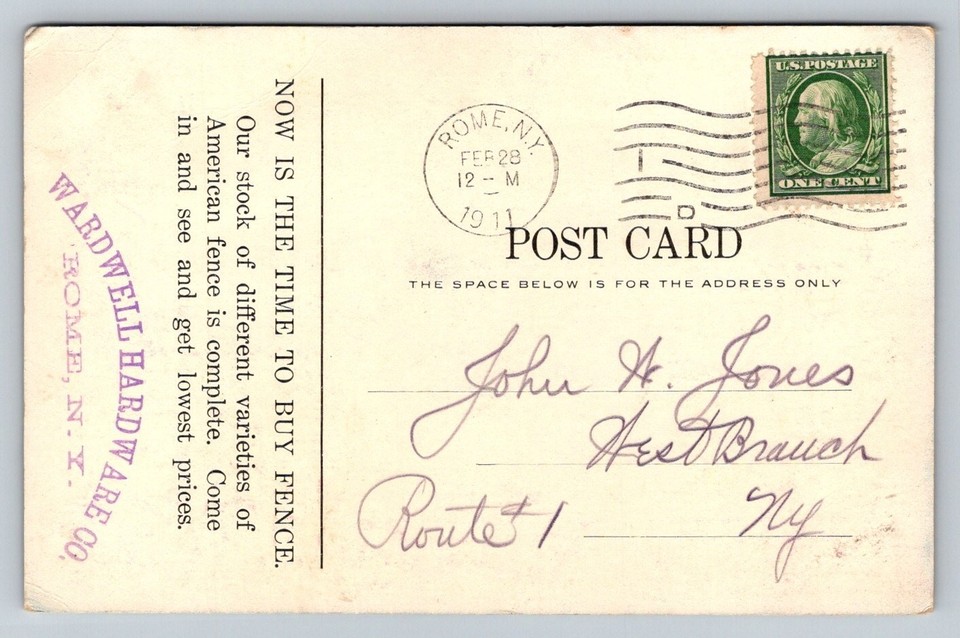 WARDWELL HARDWARE CO.
ROME, N.Y.
NOW IS THE TIME TO BUY FENCE.
Our stock of different varieties of
American fence is complete. Come
in and see and get lowest prices.
ROME, N.Y.
FEB 28
12 - M
1911
D
U.S. POSTAGE
ONE CENT
POST CARD
THE SPACE BELOW IS FOR THE ADDRESS ONLY
John W. Jones
West Branch
Route # 1 Ny